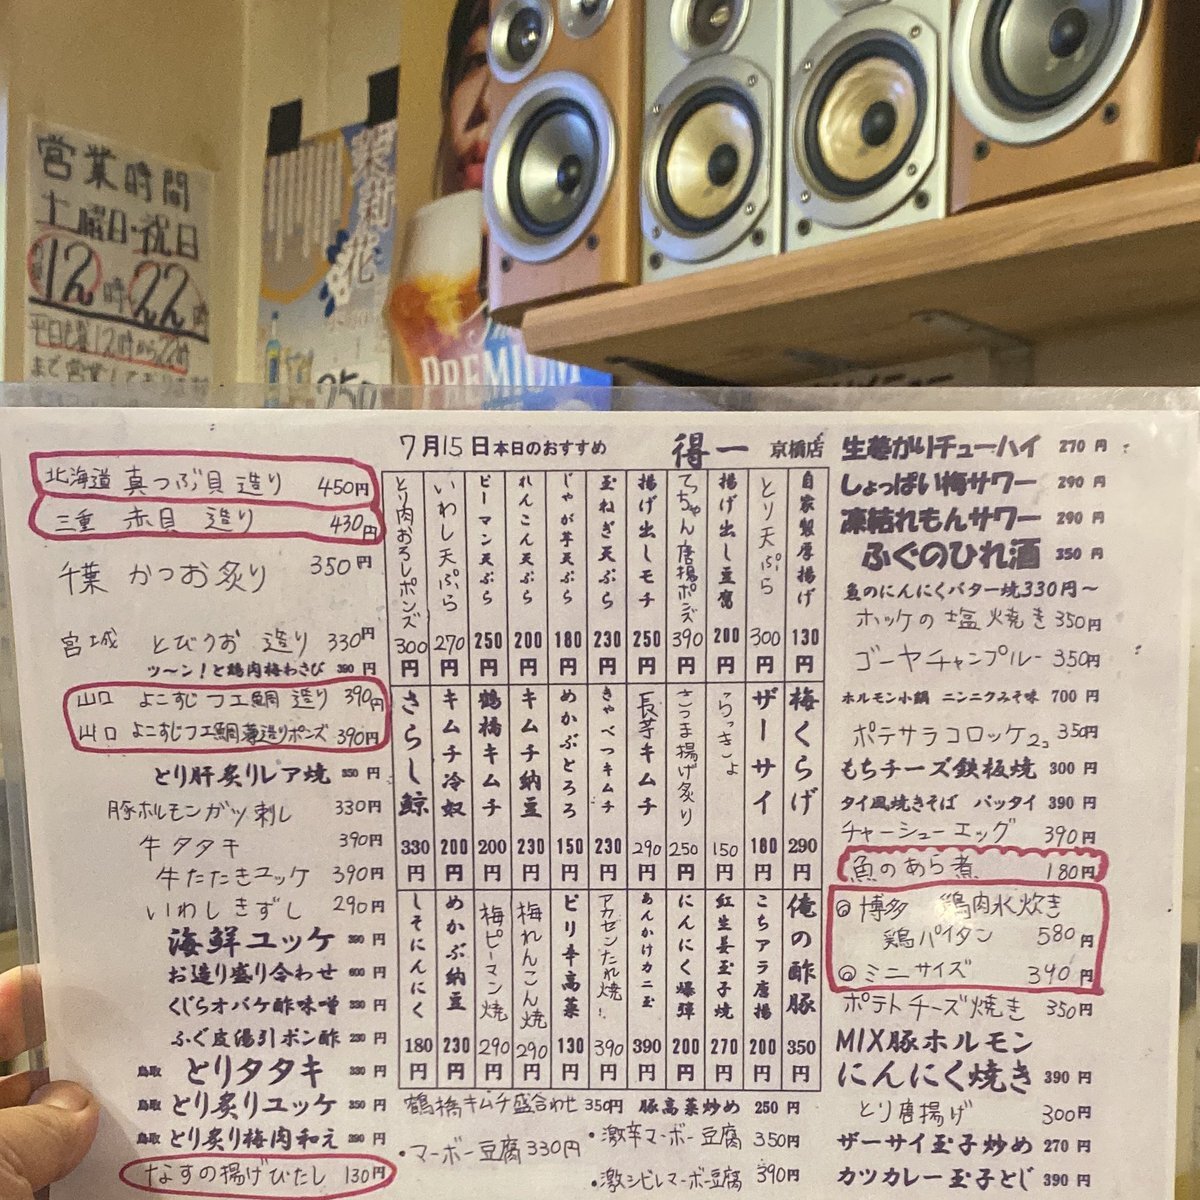 営業時間
土曜日・祝日
12時 22時
平日も昼12時から22時
まで営業しております
茉莉花
250
PREMIUM
7月15日 本日のおすすめ 得一 京橋店
北海道 真つぶ貝 造り 450円
三重 赤貝 造り 430円
千葉 かつお炙り 350円
宮城 とびうお 造り 330円
ツ〜ン!と鶏肉梅わさび 390円
山口 よこすじフエ鯛 造り 390円
山口 よこすじフエ鯛薄造りポンズ 390円
とり肝炙りレア焼 350円
豚ホルモンガツ刺し 330円
牛タタキ 390円
牛たたきユッケ 390円
いわしきずし 290円
海鮮ユッケ 390円
お造り盛り合わせ 600円
くじらオバケ酢味噌 330円
ふぐ皮湯引ポン酢 230円
鳥取 とりタタキ 330円
鳥取 とり炙りユッケ 350円
鳥取 とり炙り梅肉和え 390円
なすの揚げびたし 130円
自家製厚揚げ 130円
とり天ぷら 300円
揚げ出し豆腐 200円
てっちゃん唐揚ポンズ 390円
揚げ出しモチ 250円
玉ねぎ天ぷら 230円
じゃが芋天ぷら 180円
れんこん天ぷら 200円
ピーマン天ぷら 250円
いわし天ぷら 270円
とり肉おろしポンズ 300円
梅くらげ 290円
ザーサイ 180円
らっきょ 150円
さつま揚げ炙り 250円
長芋キムチ 290円
きゃべつキムチ 230円
めかぶとろろ 150円
キムチ納豆 230円
鶴橋キムチ 200円
キムチ冷奴 200円
さらし鯨 330円
俺の酢豚 350円
こちアラ唐揚 200円
紅生姜玉子焼 270円
にんにく爆弾 200円
あんかけカニ玉 390円
アカセンたれ焼! 390円
ピリ辛高菜 130円
梅れんこん焼 290円
梅ピーマン焼 290円
めかぶ納豆 230円
しそにんにく 180円
鶴橋キムチ盛合わせ 350円 豚高菜炒め 250円
・マーボー豆腐 330円
・激辛マーボー豆腐 350円
・激シビレマーボ豆腐 390円
生巻がりチューハイ 270円
しょっぱい梅サワー 290円
凍結れもんサワー 290円
ふぐのひれ酒 350円
魚のにんにくバター焼330円〜
ホッケの塩焼き 350円
ゴーヤチャンプルー 350円
ホルモン小鍋 ニンニクみそ味 700円
ポテサラコロッケ2コ 350円
もちチーズ鉄板焼 300円
タイ風焼きそば パッタイ 390円
チャーシューエッグ 390円
魚のあら煮 180円
◎博多 鶏肉水炊き
鶏パイタン 580円
◎ミニサイズ 390円
ポテトチーズ焼き 350円
MIX豚ホルモン
にんにく焼き 390円
とり唐揚げ 300円
ザーサイ玉子炒め 270円
カツカレー玉子とじ 390円